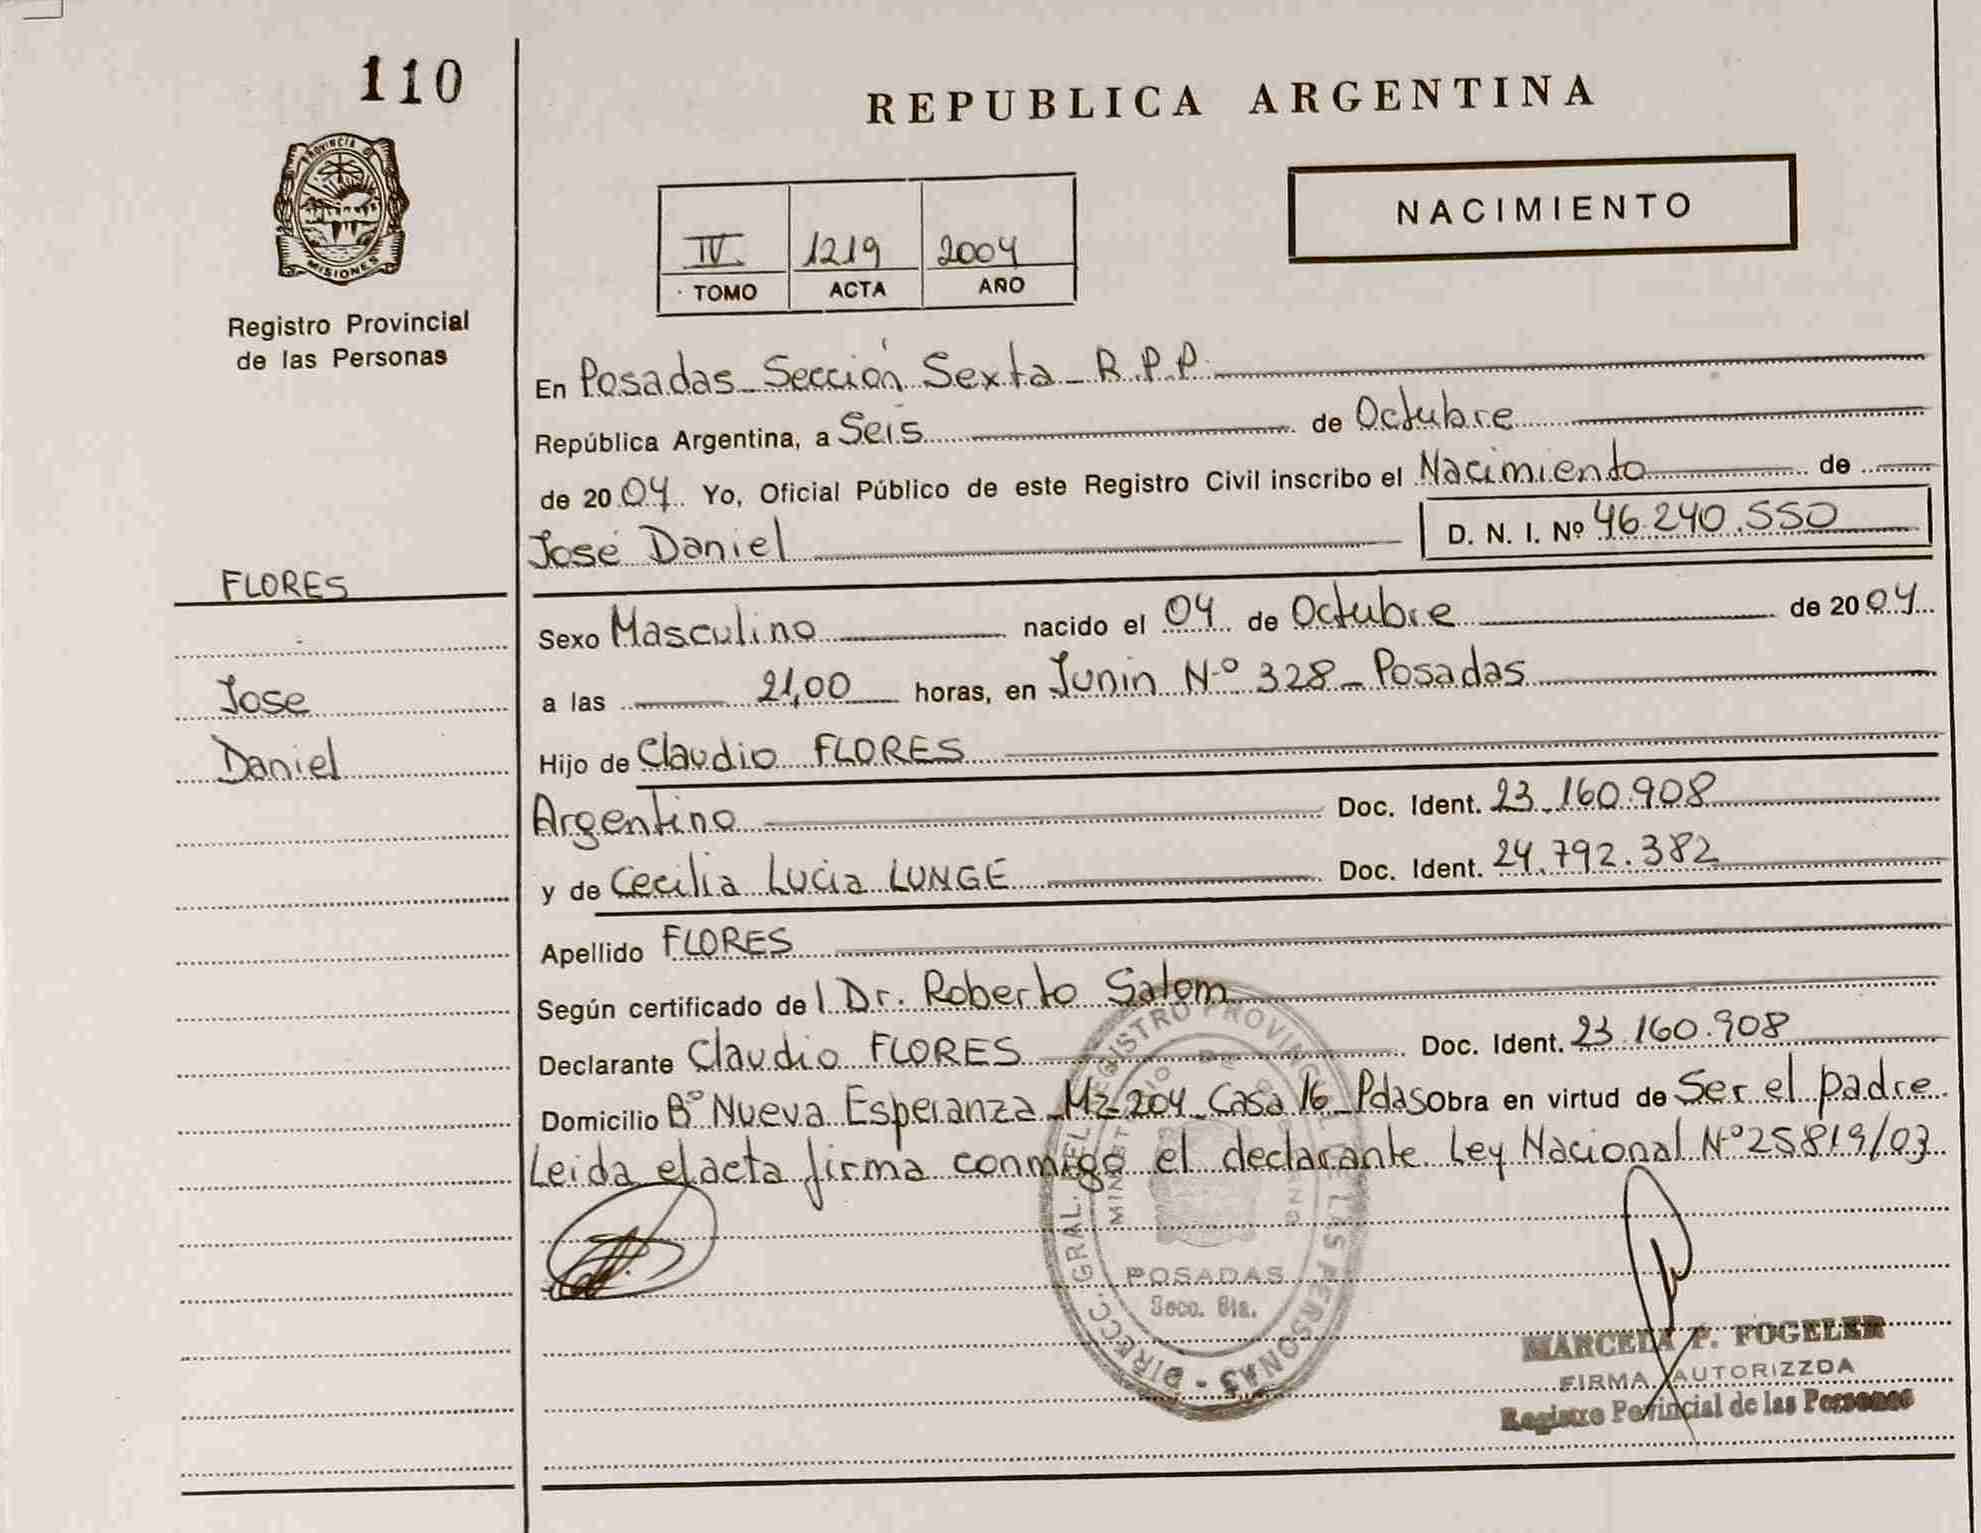 110
REPUBLICA ARGENTINA
PROVINCIA DE
MISIONES
Registro Provincial
de las Personas
NACIMIENTO
IV 1219 2004
TOMO ACTA AÑO
En Posadas Sección Sexta R.P.P.
República Argentina, a Seis de Octubre
de 2004 Yo, Oficial Público de este Registro Civil inscribo el Nacimiento de
José Daniel D. N. I. Nº 46.240.550
FLORES
Jose
Daniel
Sexo Masculino nacido el 04 de Octubre de 2004
a las 21,00 horas, en Junin Nº 328 Posadas
Hijo de Claudio FLORES
Argentino Doc. Ident. 23.160.908
y de Cecilia Lucia LUNGE Doc. Ident. 24.792.382
Apellido FLORES
Según certificado del Dr. Roberto Salom
Declarante Claudio FLORES Doc. Ident. 23.160.908
Domicilio Bº Nueva Esperanza Mz 204 Casa 16 Pdas Obra en virtud de Ser el padre
Leida el acta firma conmigo el declarante Ley Nacional Nº 25819/03
DIRECC. GRAL. DEL REGISTRO PROVINCIAL DE LAS PERSONAS
POSADAS
Secc. 6ta.
MARCELA P. FOGELER
FIRMA AUTORIZZDA
Registro Povincial de las Personas